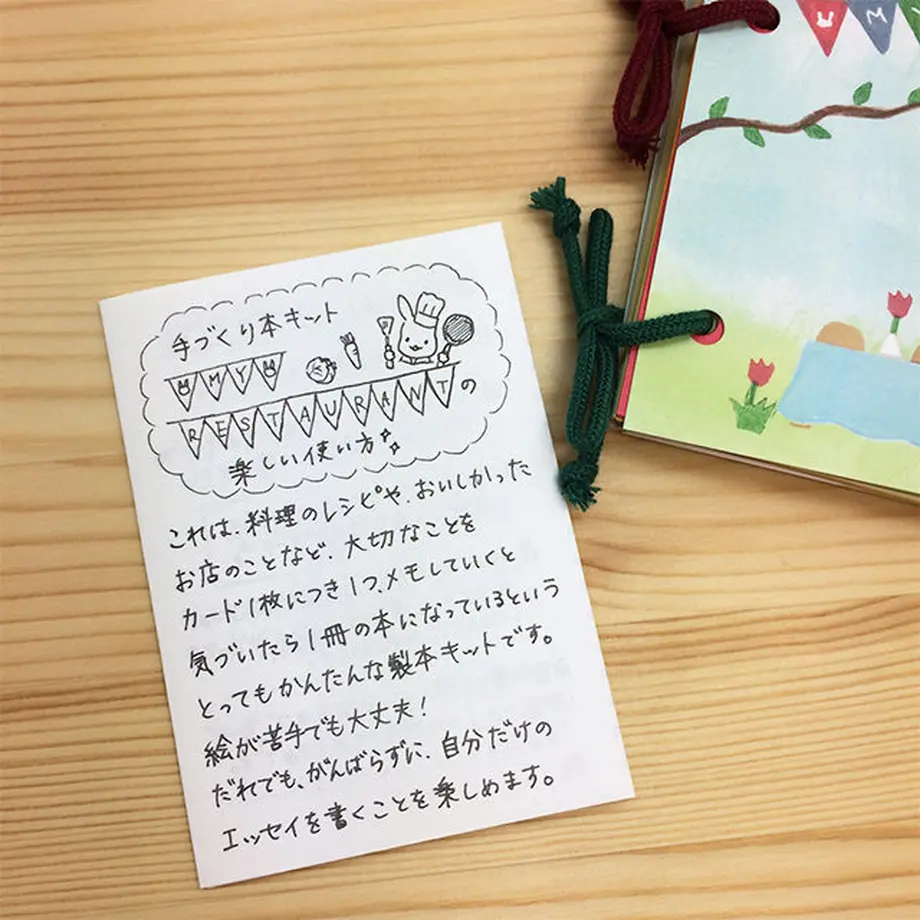 手づくり本キット
UMYU
RESTAURANTの
楽しい使い方
これは、料理のレシピや、おいしかった
お店のことなど、大切なことを
カード1枚につき1つ、メモしていくと
気づいたら1冊の本になっているという
とってもかんたんな製本キットです。
絵が苦手でも大丈夫!
だれでも、がんばらずに、自分だけの
エッセイを書くことを楽しめます。
UMY